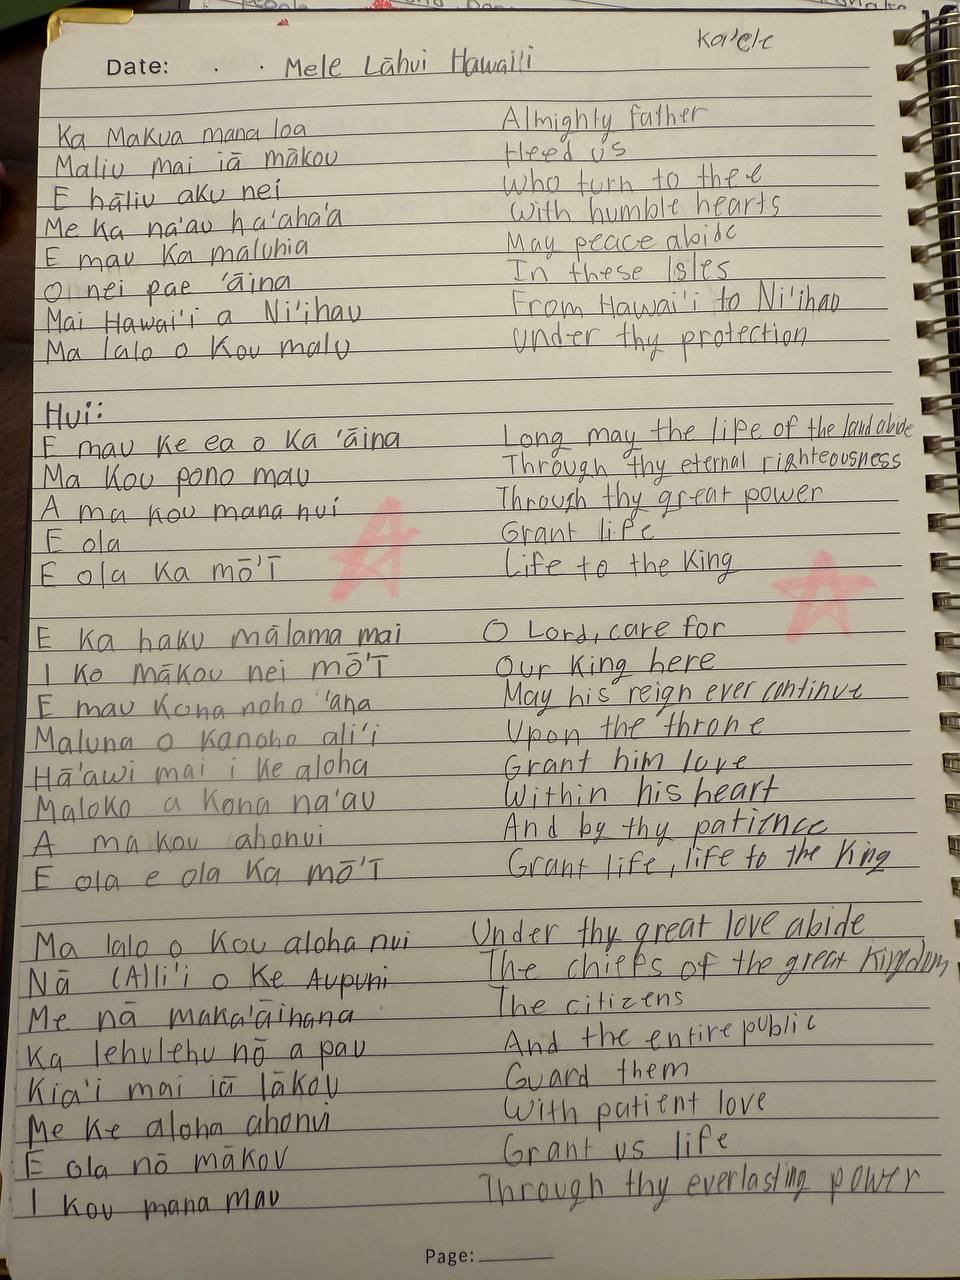 Ka'ele
Date: . . Mele Lāhui Hawai'i
Ka Makua mana loa Almighty Father
Maliu mai iā mākou Heed us
E hāliu aku nei Who turn to thee
Me Ka na'au ha'aha'a With humble hearts
E mau Ka maluhia May peace abide
O nei pae 'āina In these Isles
Mai Hawai'i a Ni'ihau From Hawai'i to Ni'ihau
Ma lalo o Kou malu Under thy protection
Hui:
E mau Ke ea o Ka 'āina Long may the life of the land abide
Ma Kou pono mau Through thy eternal righteousness
A ma kou mana nui Through thy great power
E ola Grant life
E ola Ka mō'ī Life to the King
E Ka haku mālama mai O Lord, care for
I Ko mākou nei mō'ī Our King here
E mau Kona noho 'ana May his reign ever continue
Maluna o Kanoho ali'i Upon the throne
Hā'awi mai i ke aloha Grant him love
Maloko a Kona na'au Within his heart
A ma kou ahonui And by thy patience
E ola e ola Ka mō'ī Grant life, life to the King
Ma lalo o Kou aloha nui Under thy great love abide
Nā (A)li'i o Ke Aupuni The chiefs of the great Kingdom
Me nā maka'āinana The citizens
Ka lehulehu nō a pau And the entire public
Kia'i mai iā lākou Guard them
Me Ke aloha ahonui With patient love
E ola nō mākou Grant us life
I Kou mana mau Through thy everlasting power
Page: